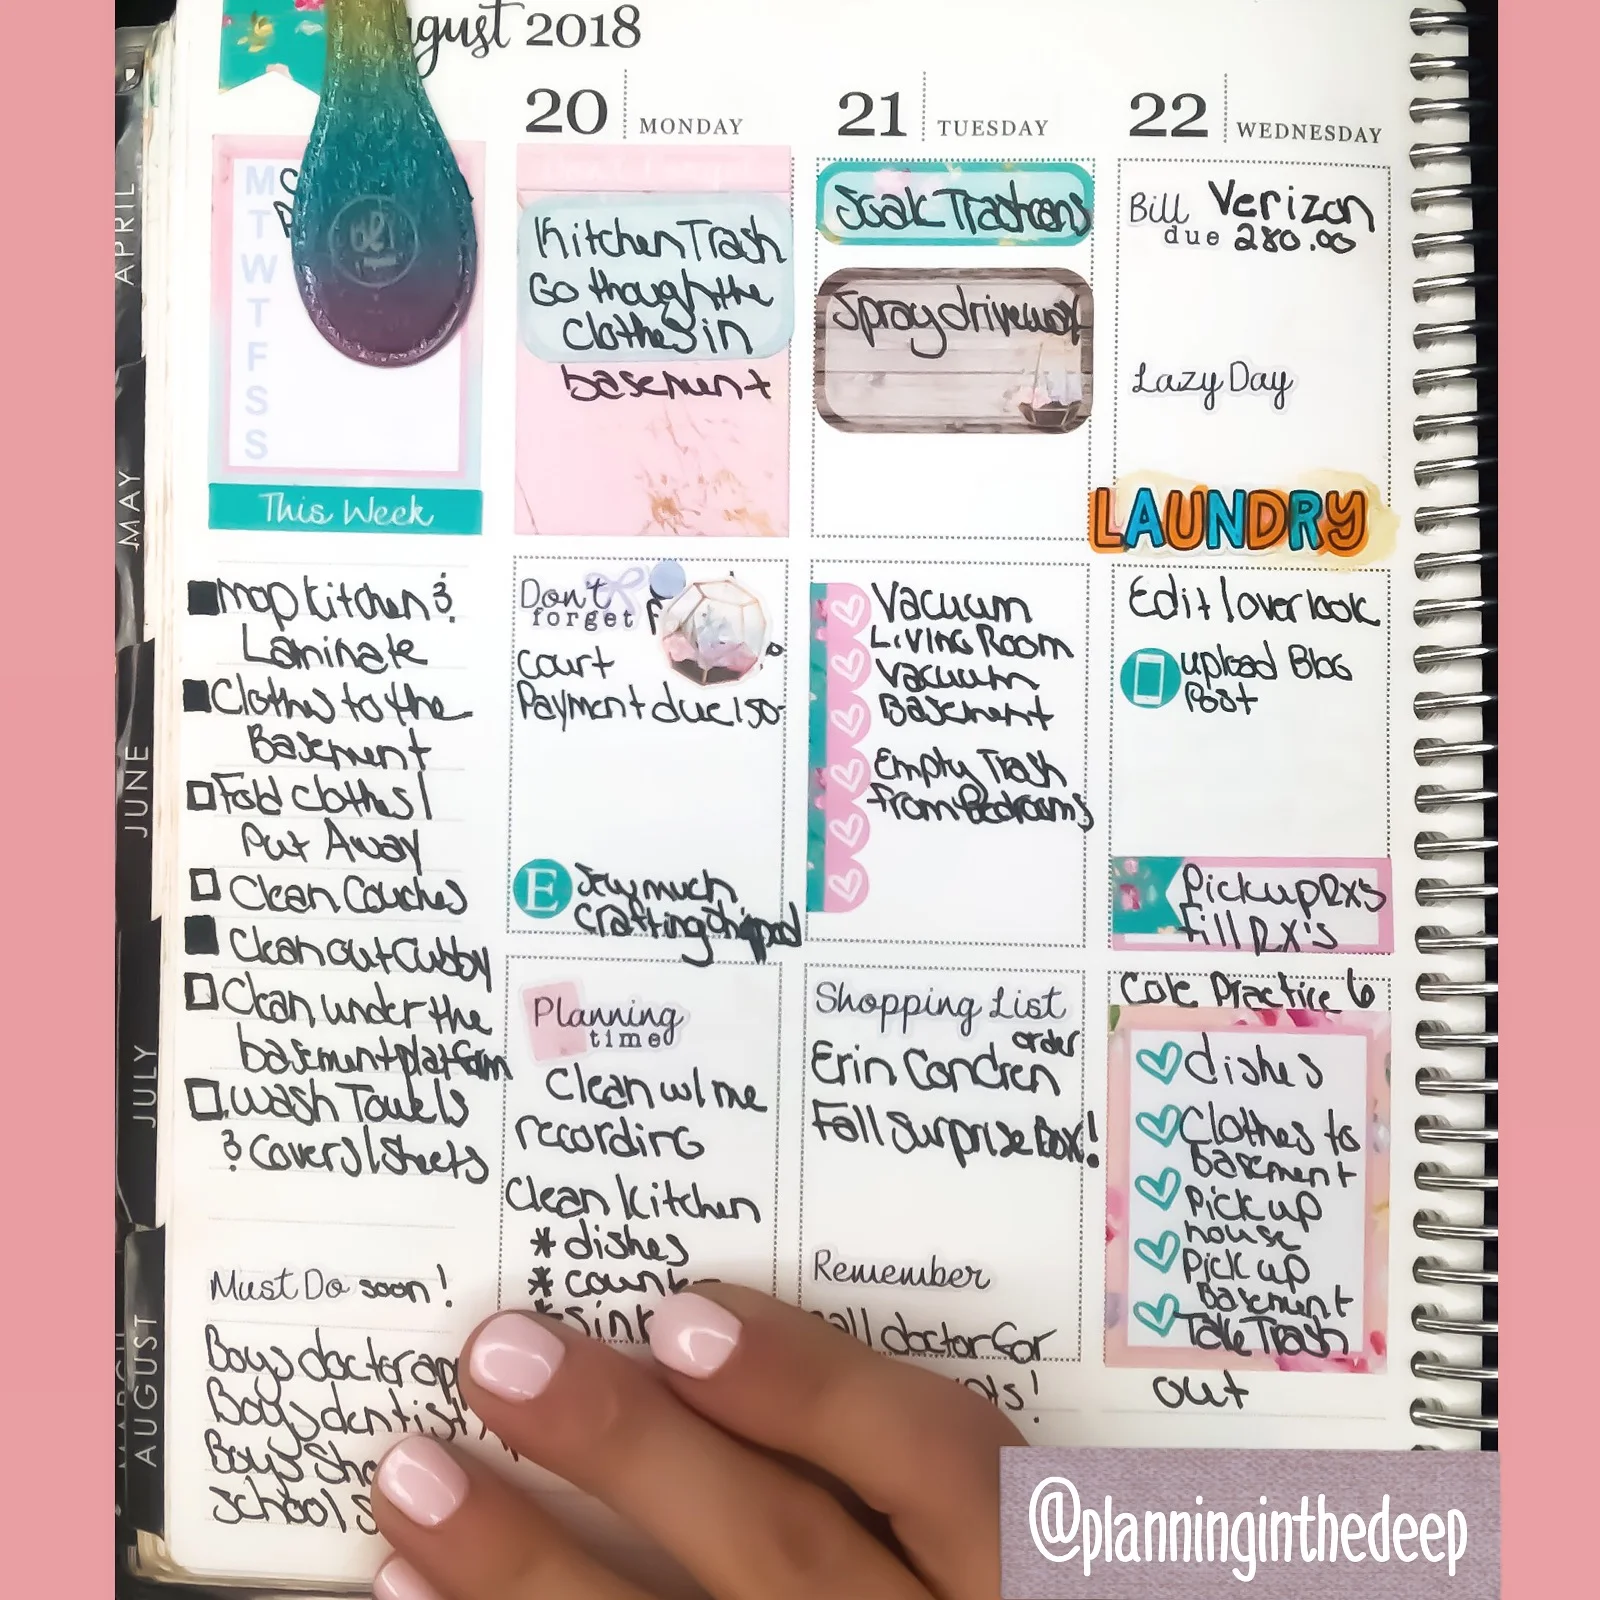 2018
20 MONDAY
21 TUESDAY
22 WEDNESDAY
M
T
W
T
F
S
S
This Week
mop kitchen &
Laminate
Clothes to the
Basement
Fold clothes /
Put Away
Clean Couches
Clean out Cubby
Clean under the
basement platform
wash Towels
& covers / Sheets
Must Do soon!
Boys doctor
Boys dentist
Boys
School
Kitchen Trash
Go though the
Clothes in
basement
Don't
forget
court
Payment due 150
E
crafting
Planning
time
Clean w/ me
recording
Clean Kitchen
* dishes
*
* sink
Soak Trashcans
Spray driveway
Vacuum
Living Room
Vacuum
Basement
Empty Trash
from Bedrooms
Shopping List
order
Erin Condren
Fall Surprise Box!
Remember
doctor for
Bill Verizon
due 280.00
Lazy Day
LAUNDRY
Edit / over look
upload Blog
Post
Pick up RX's
fill RX's
Cole Practice 6
dishes
Clothes to
basement
Pick up
house
Pick up
Basement
Take Trash
out
APRIL
MAY
JUNE
JULY
AUGUST
@planninginthedeep